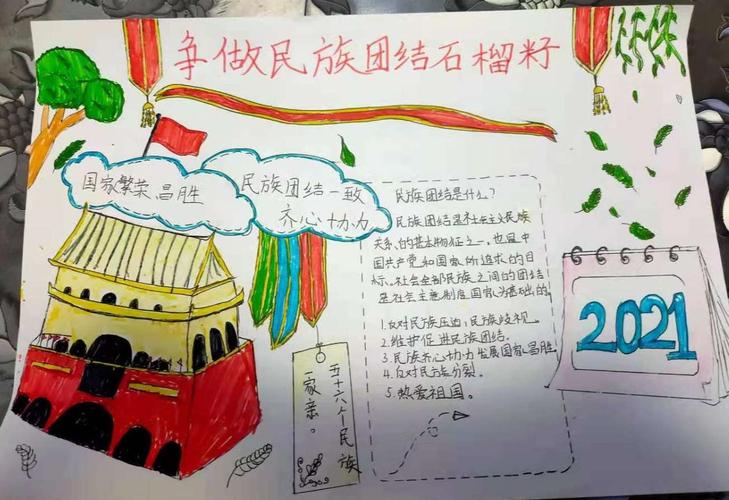 争做民族团结石榴籽
国家繁荣昌胜
民族团结一致
齐心协力
民族团结是什么?
民族团结是社会主义民族
关系的基本物征之一,也是中
国共产党和国家所追求的目
标、社会全部民族之间的团结
是社会主意制度国家为基础的
1.反对民族压迫,民族歧视。
2.维护促进民族团结.
3.民族齐心协力发展国家昌胜.
4.反对民族分裂。
5.热爱祖国。
五十六个民族
一家亲。
2021